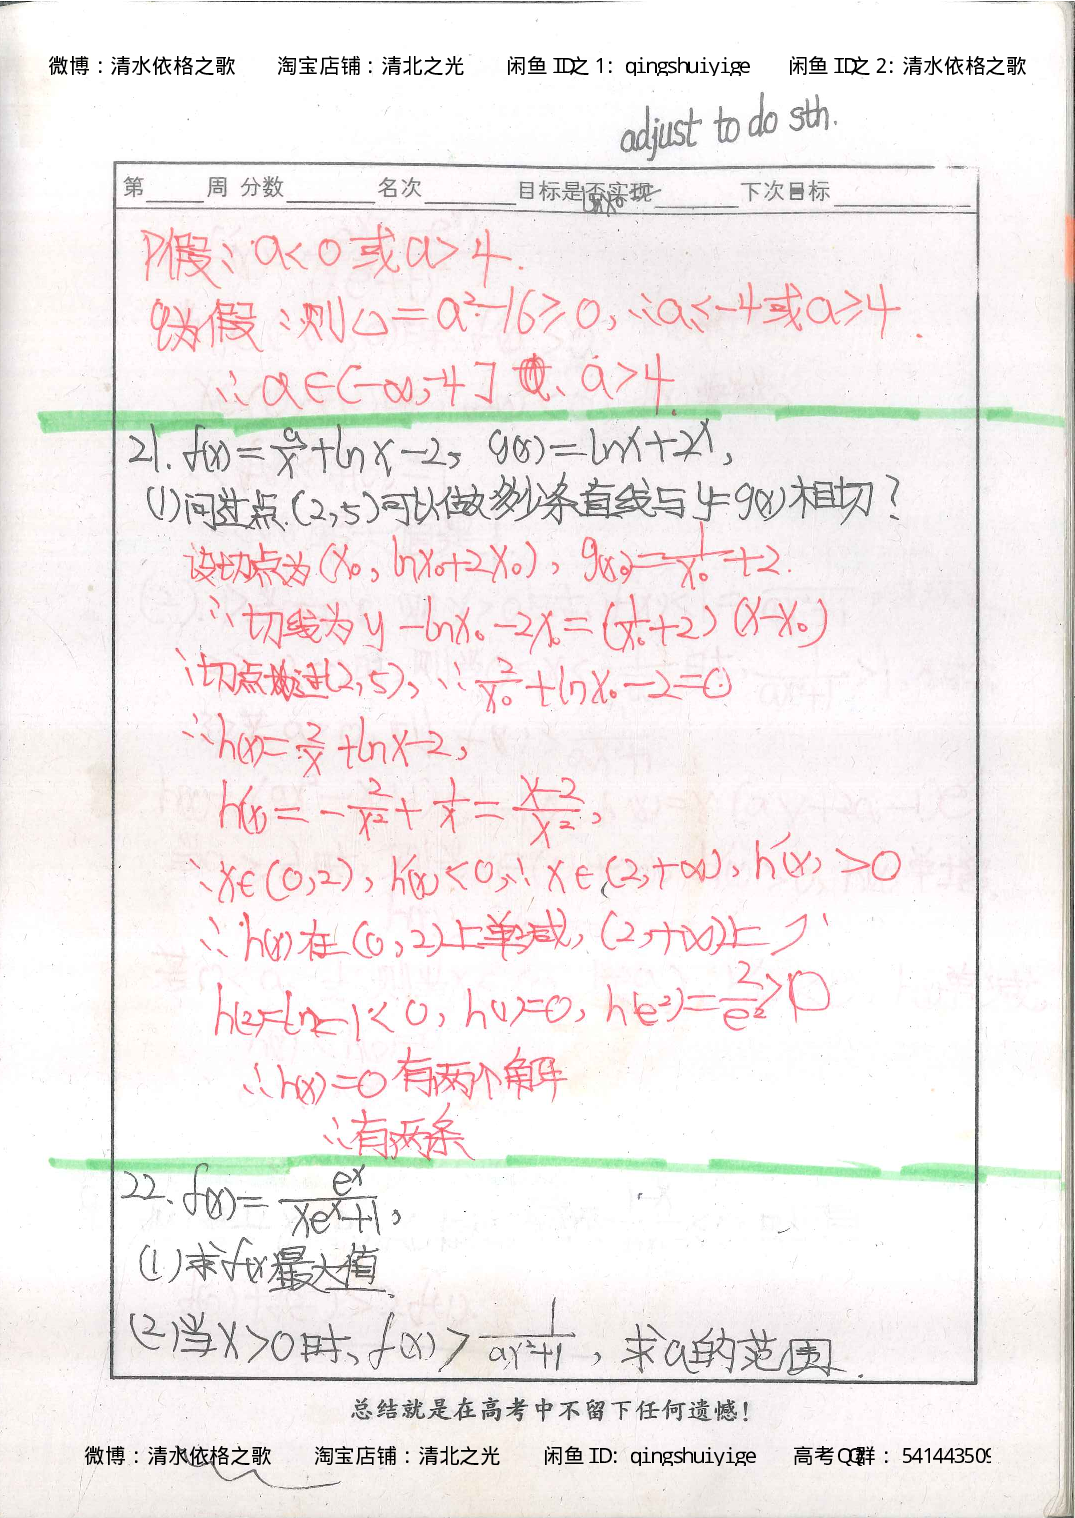 微博：清水依格之歌 淘宝店铺：清北之光 闲鱼 ID之 1: qingshuiyige 闲鱼 ID之 2: 清水依格之歌
adjust to do sth.
第 周 分数 名次 目标是否实现 下次目标
lnx₀
P假∴a<0或a>4.
q为假∴则△=a²-16≥0,∴a≤-4或a≥4.
∴a∈(-∞,-4] 或 a>4.
21. f(x)=a/x+lnx-2, g(x)=lnx+2x,
(1)问过点(2,5)可以做多少条直线与y=g(x)相切?
设切点为(x₀, lnx₀+2x₀), g(x₀)=1/x₀+2.
∴切线为y-lnx₀-2x₀=(1/x₀+2)(x-x₀)
∵切点过(2,5), ∴2/x₀+lnx₀-2=0
∴h(x)=2/x+lnx-2,
h'(x)=-2/x²+1/x=(x-2)/x²,
∴x∈(0,2), h'(x)<0,∴x∈(2,+∞), h'(x)>0
∴h(x)在(0,2)上单减, (2,+∞)上↗
h(2)=ln2-1<0, h(1)=0, h(e²)=2/e²>0
∴h(x)=0有两个解
∴有两条
22. f(x)=eˣ/(xeˣ+1),
(1)求f(x)最大值.
(2)当x>0时、f(x)>1/(ax²+1), 求a的范围.
总结就是在高考中不留下任何遗憾！
微博：清水依格之歌 淘宝店铺：清北之光 闲鱼 ID: qingshuiyige 高考QQ群：541443509